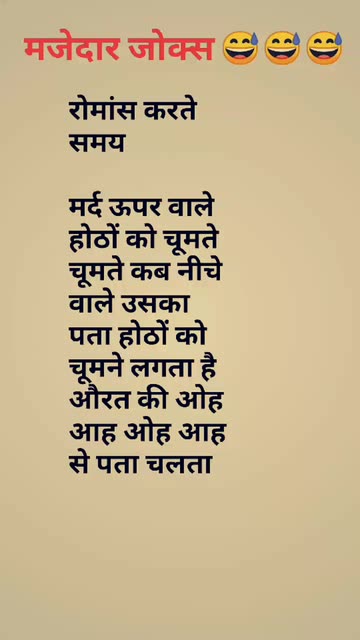 मजेदार जोक्स 😅😅😅
रोमांस करते
समय
मर्द ऊपर वाले
होठों को चूमते
चूमते कब नीचे
वाले उसका
पता होठों को
चूमने लगता है
औरत की ओह
आह ओह आह
से पता चलता